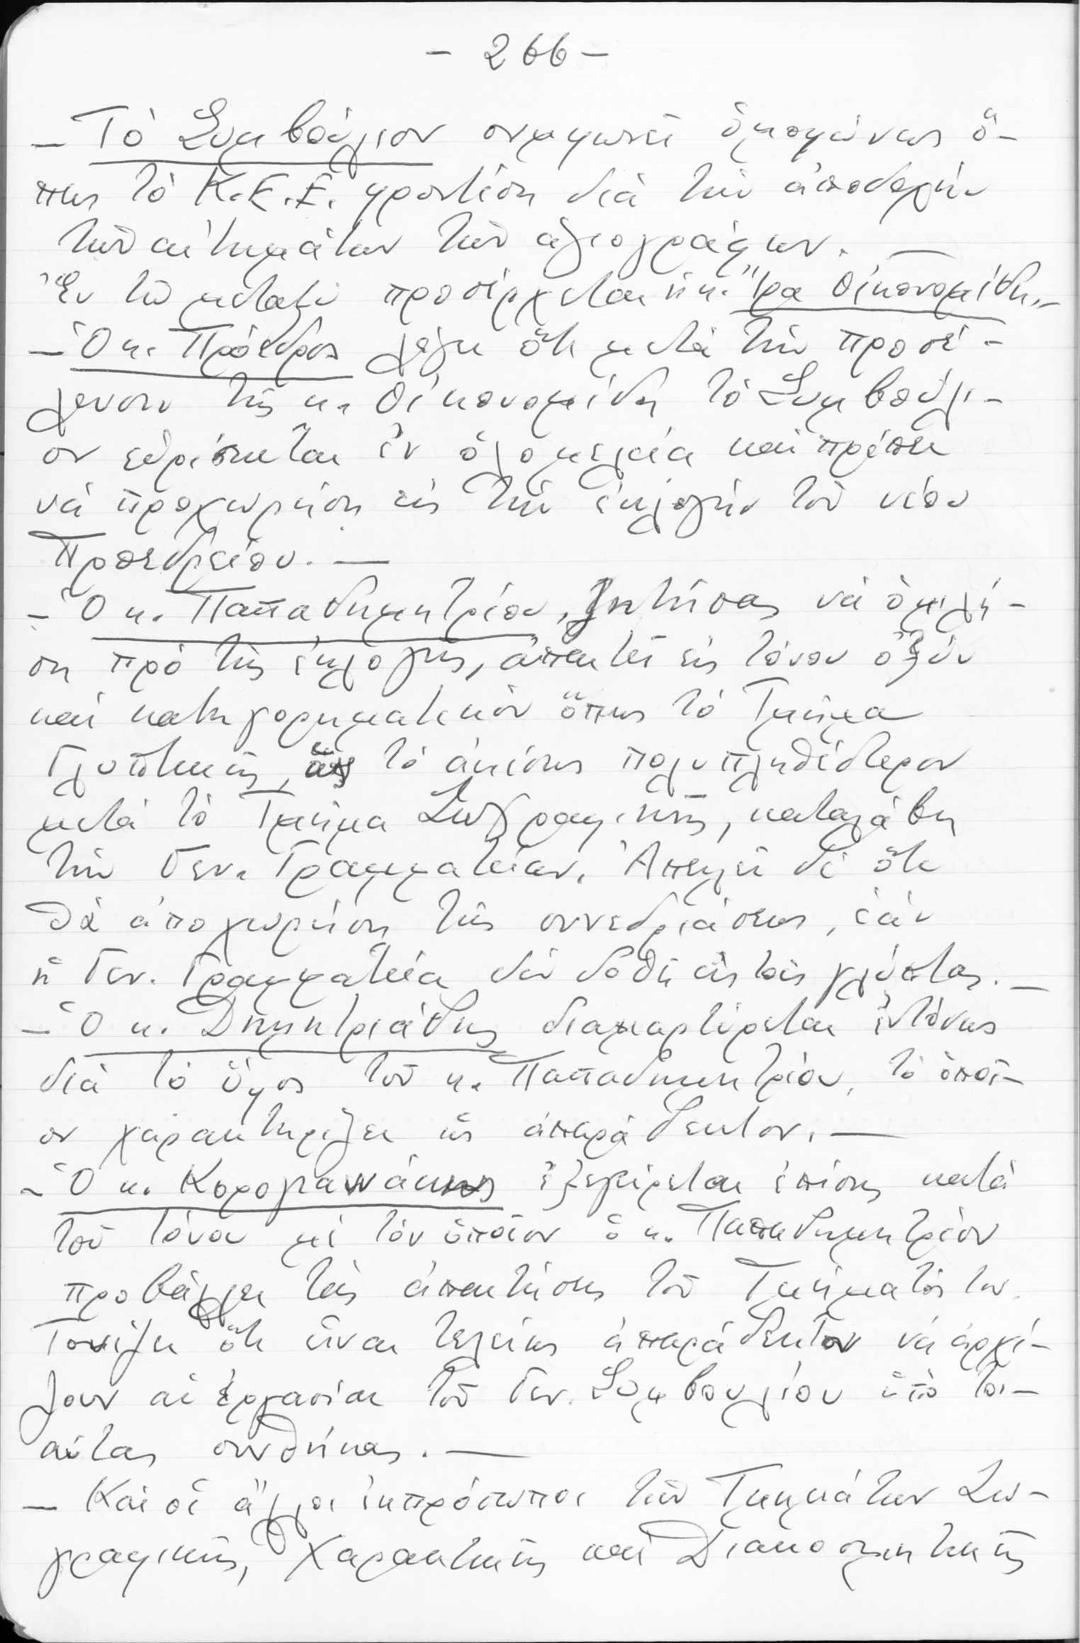 - 266 -
- Τὸ Συμβούλιον συμφωνεῖ ὁμοφώνως ὅ-
πως τὸ Κ.Ε.Ε. φροντίσῃ διὰ τὴν ἀποδοχὴν
τῶν αἰτημάτων τῶν ἁγιογράφων. -
Ἐν τῷ μεταξὺ προσέρχεται ἡ κ. Ἴρα Οἰκονομίδη.-
- Ὁ κ. Πρόεδρος λέγει ὅτι μετὰ τὴν προσέ-
λευσιν τῆς κ. Οἰκονομίδη τὸ Συμβούλι-
ον εὑρίσκεται ἐν ὁλομελείᾳ καὶ πρέπει
νὰ προχωρήσῃ εἰς τὴν ἐκλογὴν τοῦ νέου
Προεδρείου. -
- Ὁ κ. Παπαδημητρίου, ζητήσας νὰ ὁμιλή-
σῃ πρὸ τῆς ἐκλογῆς, ἀπαιτεῖ εἰς τόνον ὀξὺν
καὶ κατηγορηματικὸν ὅπως τὸ Τμῆμα
Γλυπτικῆς, ὡς τὸ ἀμέσως πολυπληθέστερον
μετὰ τὸ Τμῆμα Ζωγραφικῆς, καταλάβῃ
τὴν Γεν. Γραμματείαν. Ἀπειλεῖ δὲ ὅτι
θὰ ἀποχωρήσῃ τῆς συνεδριάσεως, ἐὰν
ἡ Γεν. Γραμματεία δὲν δοθῇ εἰς τοὺς γλύπτας. -
- Ὁ κ. Δημητριάδης διαμαρτύρεται ἐντόνως
διὰ τὸ ὕφος τοῦ κ. Παπαδημητρίου, τὸ ὁποῖ-
ον χαρακτηρίζει ὡς ἀπαράδεκτον. -
- Ὁ κ. Κορογιαννάκης ἐξεγείρεται ἐπίσης κατὰ
τοῦ τόνου μὲ τὸν ὁποῖον ὁ κ. Παπαδημητρίου
προβάλλει τὰς ἀπαιτήσεις τοῦ Τμήματός του.
Τονίζει ὅτι εἶναι τελείως ἀπαράδεκτον νὰ ἀρχί-
ζουν αἱ ἐργασίαι τοῦ Γεν. Συμβουλίου ὑπὸ τοι-
αύτας συνθήκας. -
- Καὶ οἱ ἄλλοι ἐκπρόσωποι τῶν Τμημάτων Ζω-
γραφικῆς, Χαρακτικῆς καὶ Διακοσμητικῆς